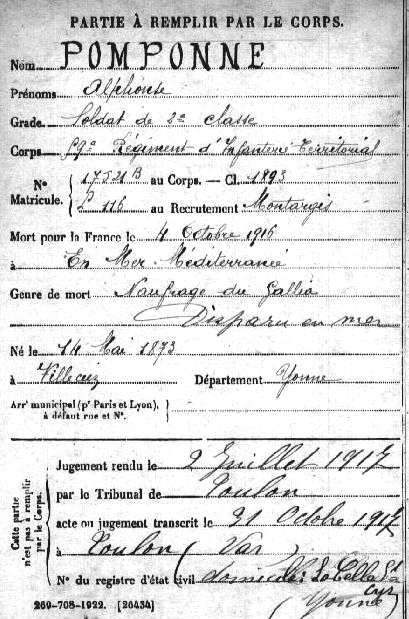 PARTIE À REMPLIR PAR LE CORPS.
Nom POMPONNE
Prénoms Alphonse
Grade Soldat de 2e classe
Corps Régiment d'Infanterie Territorial
N° Matricule. 17521 B au Corps. — Cl. 1893
116 au Recrutement Montargis
Mort pour la France le 4 Octobre 1916
à En Mer Méditerranée
Genre de mort Naufrage du Gallia
Disparu en mer
Né le 14 Mai 1873
à Département Yonne
Arr^t municipal (p^r Paris et Lyon),
à défaut rue et N°.
Cette partie n'est pas à remplir par le Corps.
Jugement rendu le 2 Juillet 1917
par le Tribunal de Toulon
acte ou jugement transcrit le 31 Octobre 1917
à Toulon (Var)
N° du registre d'état civil domicile: La Celle St
Cyr
(Yonne)
269-708-1922. [26434]